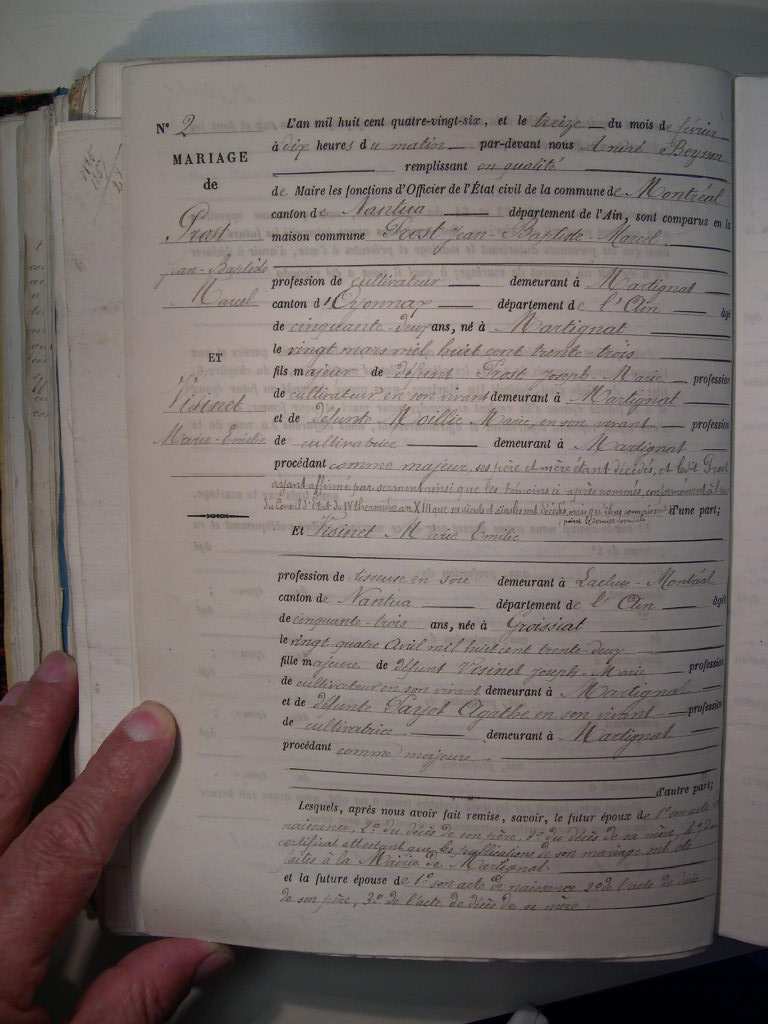 N° 2
MARIAGE
de
Prost
Jean-Baptiste
Marcel
ET
Visinet
Marie-Emilie
L'an mil huit cent quatre-vingt-six, et le treize du mois de février
à dix heures du matin par-devant nous André
remplissant en qualité
de Maire les fonctions d'Officier de l'État civil de la commune de Montréal
canton de Nantua département de l'Ain, sont comparus en la
maison commune Prost Jean-Baptiste-Marcel
profession de cultivateur demeurant à Martignat
canton d'Oyonnax département de l'Ain âgé
de cinquante-deux ans, né à Martignat
le vingt mars mil huit cent trente-trois
fils majeur de défunt Prost Joseph-Marie profession
de cultivateur en son vivant demeurant à Martignat
et de défunte Moillie Marie, en son vivant profession
de cultivatrice demeurant à Martignat
procédant comme majeur, ses père et mère étant décédés, et ledit Prost
ayant affirmé par serment ainsi que les témoins ci-après nommés, conformément à
du Conseil d'état du IV thermidor an XIII que ses aïeuls et aïeules sont décédés,
d'une part;
Et Visinet Marie Emilie
profession de tisseuse en soie demeurant à Lacluse-Montréal
canton de Nantua département de l'Ain âgée
de cinquante-trois ans, née à Groissiat
le vingt quatre avril mil huit cent trente-deux
fille majeure de défunt Visinet Joseph-Marie profession
de cultivateur en son vivant demeurant à Martignat
et de défunte Agathe en son vivant profession
de cultivatrice demeurant à Martignat
procédant comme majeure.
d'autre part;
Lesquels, après nous avoir fait remise, savoir, le futur époux de 1° son acte de
naissance, 2° du décès de son père, 3° du décès de sa mère, 4° du
certificat attestant que les publications de son mariage ont été
faites à la Mairie de Martignat.
et la future épouse de 1° son acte de naissance 2° de l'acte de décès
de son père, 3° de l'acte de décès de sa mère.